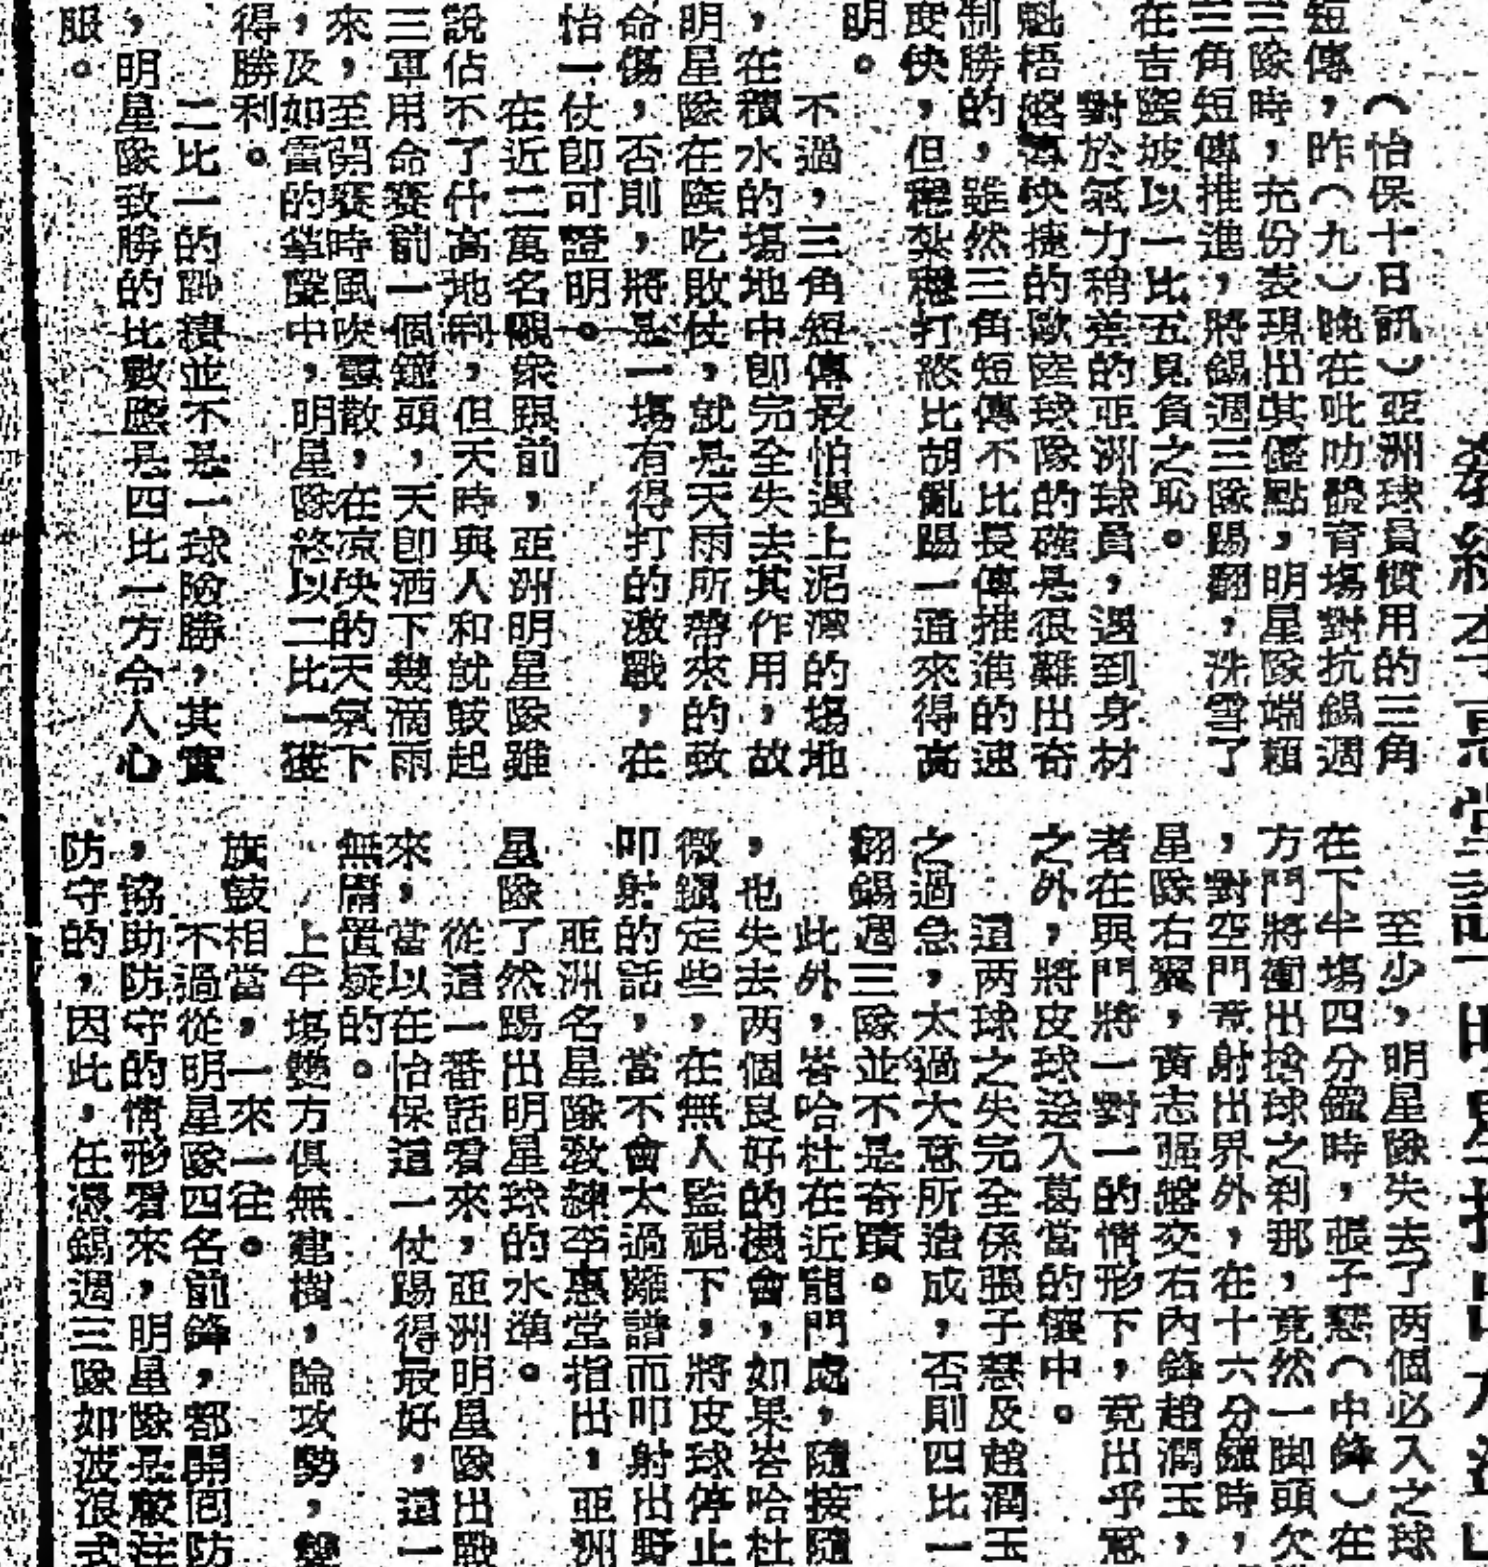 (怡保十日訊)亞洲球員慣用的三角
短傳,昨(九)晚在吡叻體育場對抗錫週
三隊時,充份表現出其優點,明星隊端賴
三角短傳推進,將錫週三隊踢翻,洗雪了
在吉隆坡以一比五見負之恥。
對於氣力稍差的亞洲球員,遇到身材
魁梧盤傳快捷的歐陸球隊的確是很難出奇
制勝的,雖然三角短傳不比長傳推進的速
度快,但穩紮穩打終比胡亂踢一通來得高
明。
不過,三角短傳最怕遇上泥濘的場地
,在積水的塲地中即完全失去其作用,故
明星隊在隆吃敗仗,就是天雨所帶來的致
命傷,否則,將是一塲有得打的激戰,在
怡一仗即可證明。
在近二萬名觀衆眼前,亞洲明星隊雖
說佔不了什高地利,但天時與人和就鼓起
三軍用命賽前一個鐘頭,天即洒下幾滴雨
來,至開賽時風吹雲散,在凉快的天氣下
,及如雷的掌聲中,明星隊終以二比一獲
得勝利。
二比一的戰績並不是一球險勝,其實
,明星隊致勝的比數應是四比一方令人心
服。
至少,明星隊失去了两個必入之球
在下半塲四分鐘時,張子慧(中鋒)在
方門將衝出搶球之刹那,竟然一脚頭欠
,對空門竟射出界外,在十六分鐘時,
星隊右翼,黃志强盤交右內鋒趙潤玉,
者在與門將一對一的情形下,竟出乎意
之外,將皮球送入葛當的懷中。
這两球之失完全係張子慧及趙潤玉
之過急,太過大意所造成,否則四比一
翻錫週三隊並不是奇蹟。
此外,峇哈杜在近龍門處,隨接隨
,也失去两個良好的機會,如果峇哈杜
微鎭定些,在無人監視下,將皮球停止
叩射的話,當不會太過離譜而叩射出野
亞洲名星隊教練李惠堂指出,亞洲
星隊了然踢出明星球的水準。
從這一番話看來,亞洲明星隊出戰
來,當以在怡保這一仗踢得最好,這一
無庸置疑的。
上半塲雙方俱無建樹,論攻勢,雙
旗鼓相當,一來一往。
不過從明星隊四名前鋒,都開囘防
,協助防守的情形看來,明星隊是嚴注
防守的,因此,任憑錫週三隊如波浪式